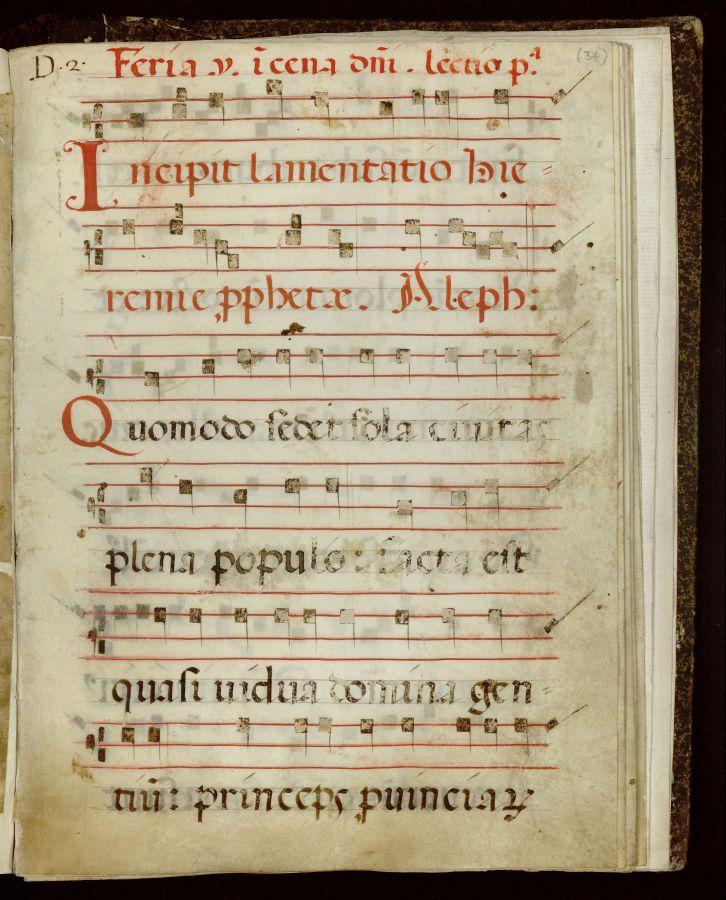 D. 2. Feria .v. ĩ cena dñi . lectio pª (34)
Incipit lamentatio hie=
remie ꝓphetæ. Aleph:
Quomodo sedet sola ciuitas
plena populo: facta est
quasi uidua domina gen=
tiũ: princeps ꝓuinciaꝝ